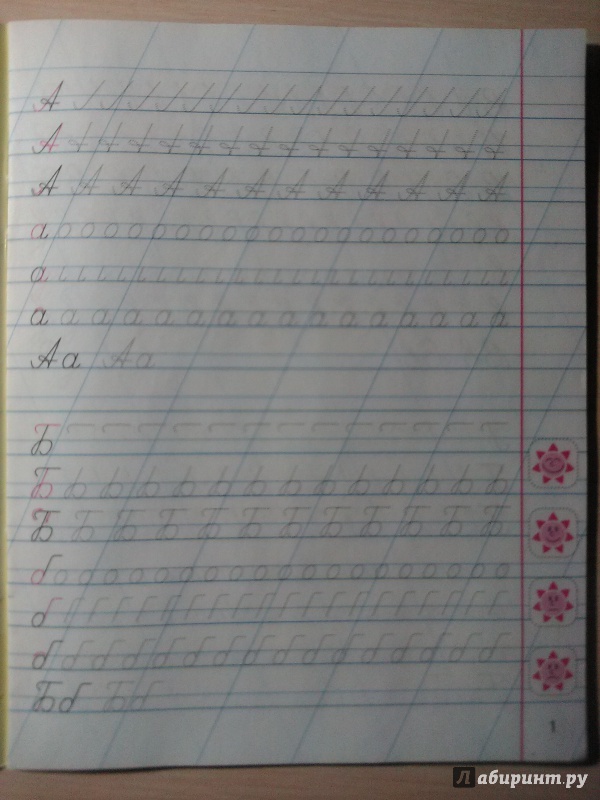 А
А
А А А А А А А А А А А А
а
а
а а а а а а а а а а а а а а а а
Аа Аа
Б
Б
Б Б Б Б Б Б Б Б Б Б Б Б
б
б
б б б б б б б б б б б б б б б б
Бб Бб
1
Лабиринт.ру